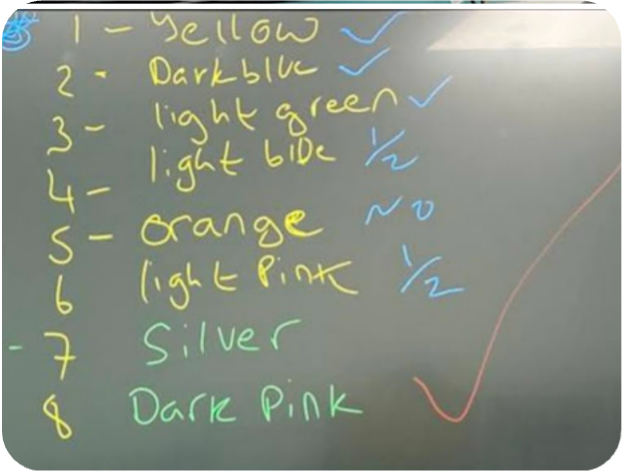 1 - Yellow ✓
2 - Dark blue ✓
3 - light green ✓
4 - light blue 1/2
5 - orange NO
6 light Pink 1/2
- 7 Silver
8 Dark Pink ✓